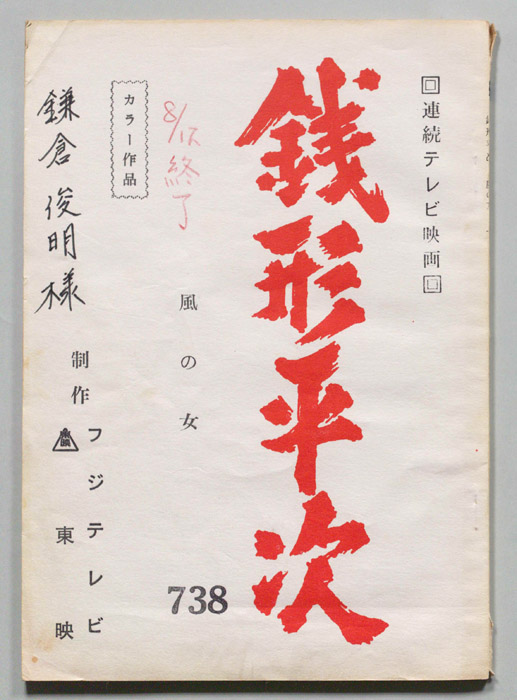 連続テレビ映画
銭形平次
風の女
738
8/15終了
カラー作品
鎌倉俊明様
制作
フジテレビ
東映